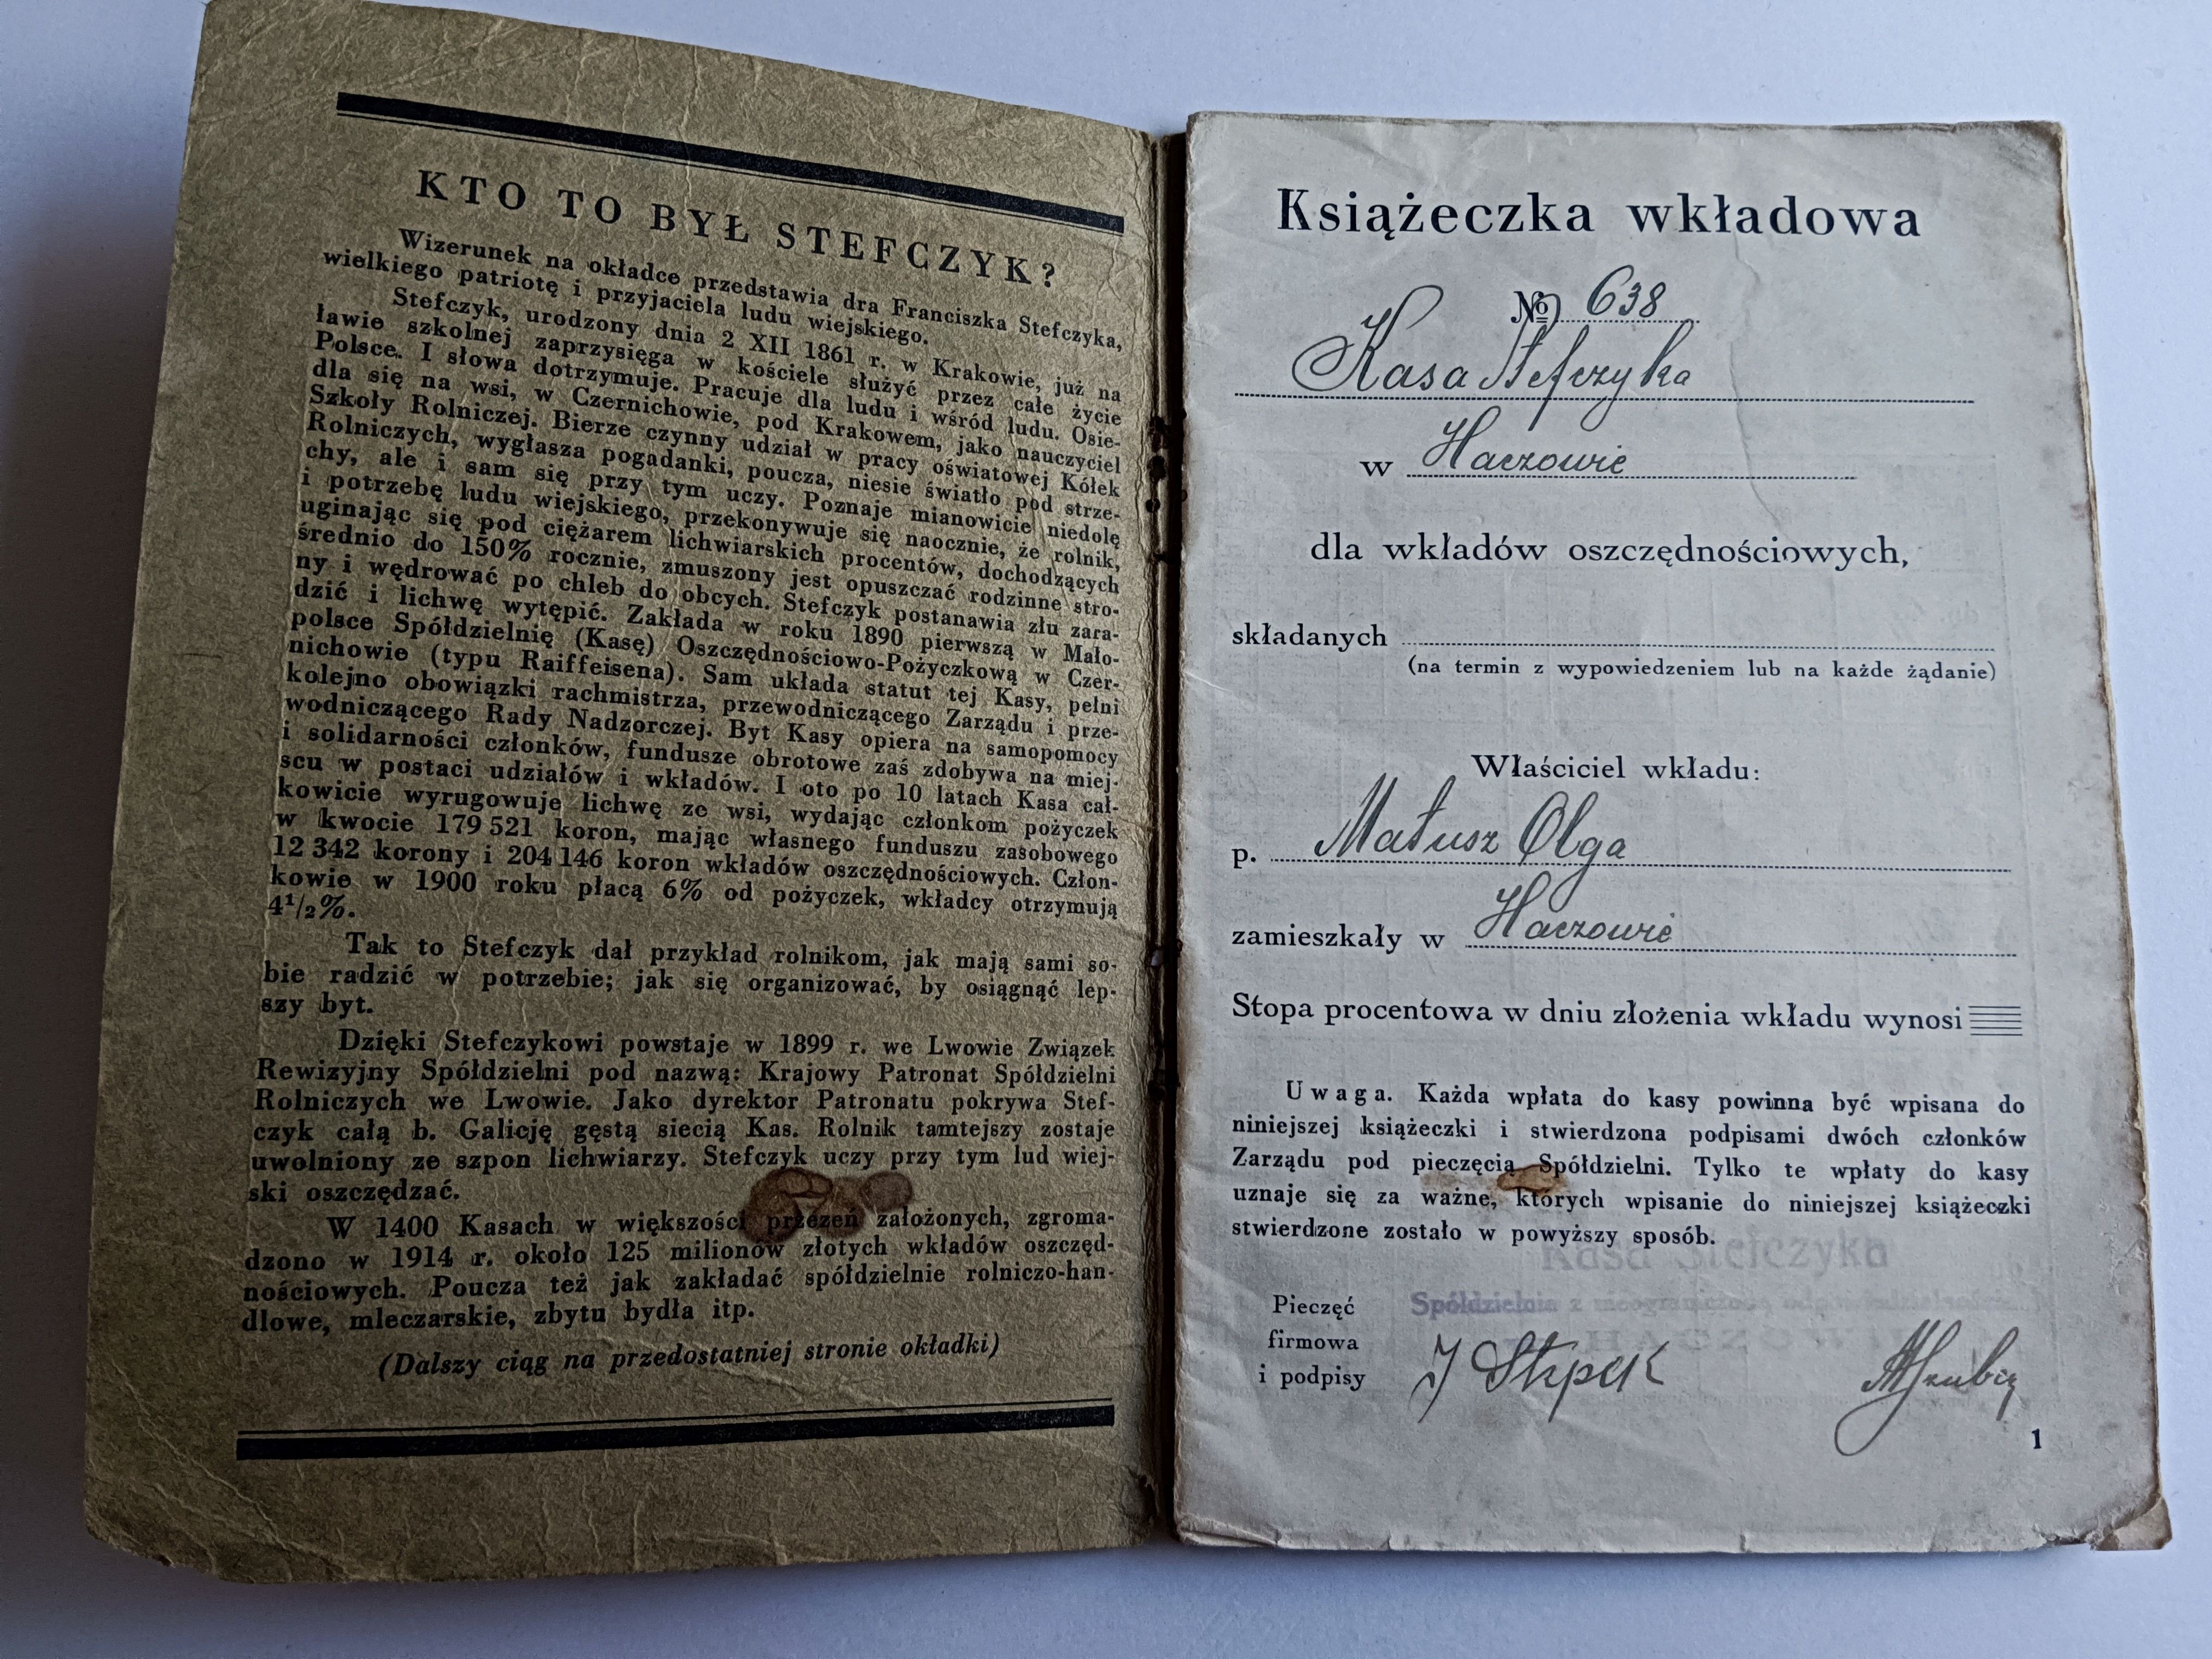 KTO TO BYŁ STEFCZYK?
Wizerunek na okładce przedstawia dra Franciszka Stefczyka,
wielkiego patriotę i przyjaciela ludu wiejskiego.
Stefczyk, urodzony dnia 2 XII 1861 r. w Krakowie, już na
ławie szkolnej zaprzysięga w kościele służyć przez całe życie
Polsce. I słowa dotrzymuje. Pracuje dla ludu i wśród ludu. Osie-
dla się na wsi, w Czernichowie, pod Krakowem, jako nauczyciel
Szkoły Rolniczej. Bierze czynny udział w pracy oświatowej Kółek
Rolniczych, wygłasza pogadanki, poucza, niesie światło pod strze-
chy, ale i sam się przy tym uczy. Poznaje mianowicie niedolę
i potrzebę ludu wiejskiego, przekonywuje się naocznie, że rolnik,
uginając się pod ciężarem lichwiarskich procentów, dochodzących
średnio do 150% rocznie, zmuszony jest opuszczać rodzinne stro-
ny i wędrować po chleb do obcych. Stefczyk postanawia złu zara-
dzić i lichwę wytępić. Zakłada w roku 1890 pierwszą w Mało-
polsce Spółdzielnię (Kasę) Oszczędnościowo-Pożyczkową w Czer-
nichowie (typu Raiffeisena). Sam układa statut tej Kasy, pełni
kolejno obowiązki rachmistrza, przewodniczącego Zarządu i prze-
wodniczącego Rady Nadzorczej. Byt Kasy opiera na samopomocy
i solidarności członków, fundusze obrotowe zaś zdobywa na miej-
scu w postaci udziałów i wkładów. I oto po 10 latach Kasa cał-
kowicie wyrugowuje lichwę ze wsi, wydając członkom pożyczek
w kwocie 179 521 koron, mając własnego funduszu zasobowego
12 342 korony i 204 146 koron wkładów oszczędnościowych. Człon-
kowie w 1900 roku płacą 6% od pożyczek, wkładcy otrzymują
4¹/₂%.
Tak to Stefczyk dał przykład rolnikom, jak mają sami so-
bie radzić w potrzebie; jak się organizować, by osiągnąć lep-
szy byt.
Dzięki Stefczykowi powstaje w 1899 r. we Lwowie Związek
Rewizyjny Spółdzielni pod nazwą: Krajowy Patronat Spółdzielni
Rolniczych we Lwowie. Jako dyrektor Patronatu pokrywa Stef-
czyk całą b. Galicję gęstą siecią Kas. Rolnik tamtejszy zostaje
uwolniony ze szpon lichwiarzy. Stefczyk uczy przy tym lud wiej-
ski oszczędzać.
W 1400 Kasach w większości przezeń założonych, zgroma-
dzono w 1914 r. około 125 milionów złotych wkładów oszczęd-
nościowych. Poucza też jak zakładać spółdzielnie rolniczo-han-
dlowe, mleczarskie, zbytu bydła itp.
(Dalszy ciąg na przedostatniej stronie okładki)
Książeczka wkładowa
№ 638
Kasa Stefczyka
w Haczowie
dla wkładów oszczędnościowych,
składanych
(na termin z wypowiedzeniem lub na każde żądanie)
Właściciel wkładu:
p. Matusz Olga
zamieszkały w Haczowie
Stopa procentowa w dniu złożenia wkładu wynosi
Uwaga. Każda wpłata do kasy powinna być wpisana do
niniejszej książeczki i stwierdzona podpisami dwóch członków
Zarządu pod pieczęcią Spółdzielni. Tylko te wpłaty do kasy
uznaje się za ważne, których wpisanie do niniejszej książeczki
stwierdzone zostało w powyższy sposób.
Kasa Stefczyka
Pieczęć Spółdzielnia z nieograniczoną
firmowa
i podpisy
1